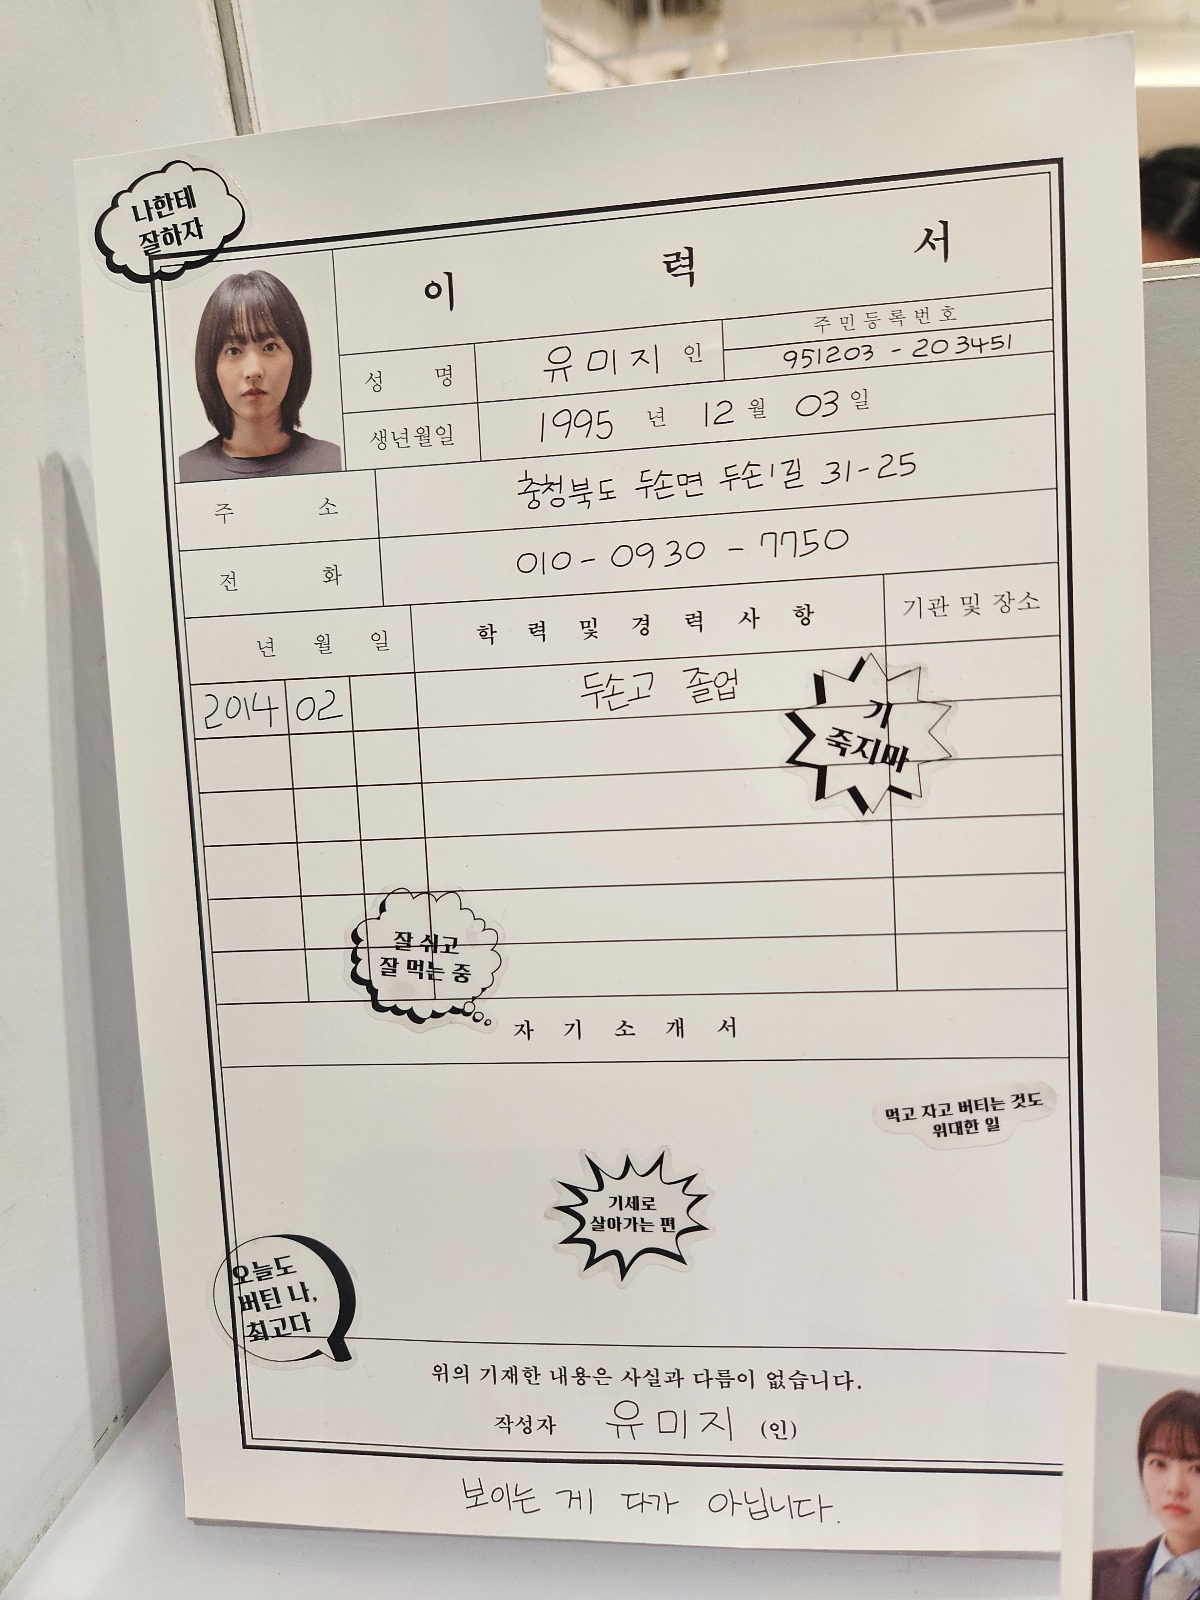 나한테
잘하자
이 력 서
성 명 유미지 인
주민등록번호
951203 - 203451
생년월일 1995 년 12 월 03 일
주 소 충청북도 두손면 두손1길 31-25
전 화 010 - 0930 - 7750
년 월 일 학 력 및 경 력 사 항 기관 및 장소
2014 02 두손고 졸업
기
죽지마
잘 쉬고
잘 먹는 중
자 기 소 개 서
먹고 자고 버티는 것도
위대한 일
기세로
살아가는 편
오늘도
버틴 나,
최고다
위의 기재한 내용은 사실과 다름이 없습니다.
작성자 유미지 (인)
보이는 게 다가 아닙니다.